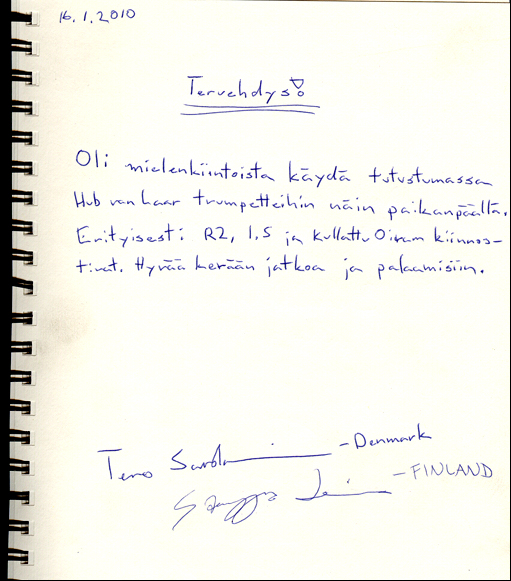 16.1.2010
Tervehdys!
Oli mielenkiintoista käydä tutustumassa
Hub van Laar trumpetteihin näin paikanpäältä.
Erityisesti R2, 1,5 ja kullattu Oiram kiinnos-
tivat. Hyvää kevään jatkoa ja palaamisiin.
Tero - Denmark
- FINLAND